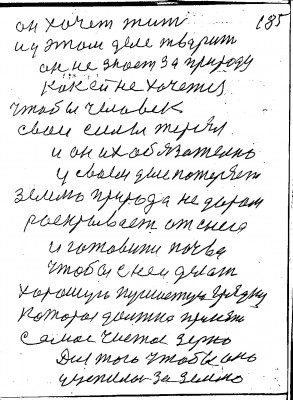 он хочет жить 185
и у этом деле творит
он не знает за природу
как ей не хочется
чтобы человек
свои силы терял
и он их обязательно
у своем деле потеряет
землю природа не даром
раскрывает от снега
и готовит почва
чтобы с ней делать
хорошую пушистую грядку
которая должна принять
самое чистое зерно
Для того чтобы оно
уцепилось за землю